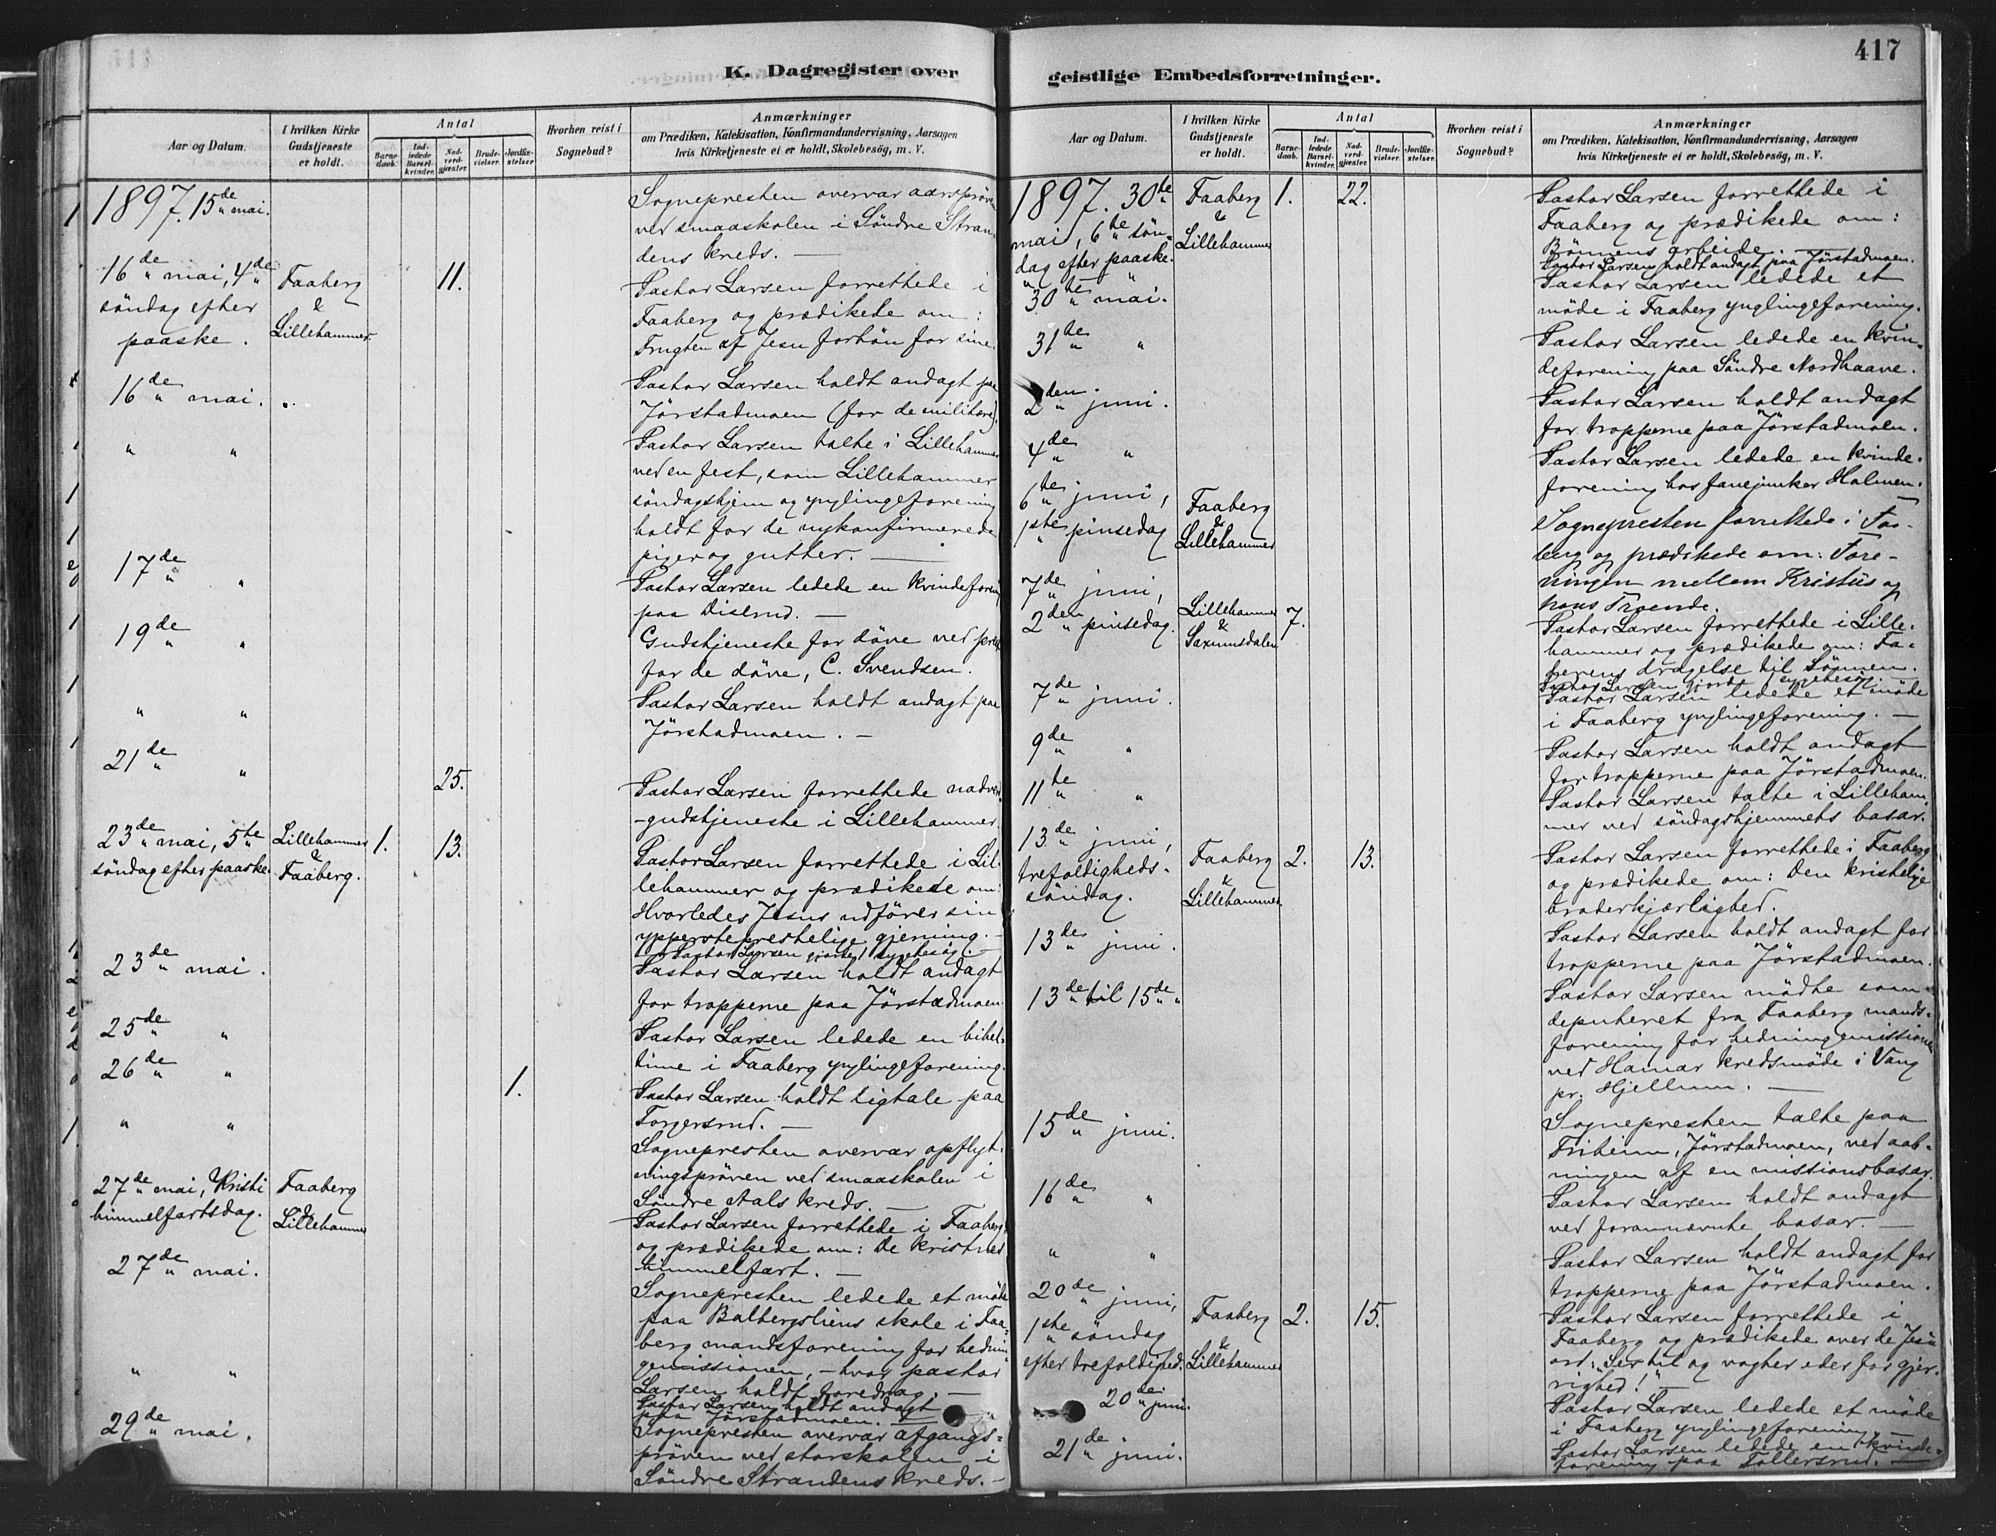 K. Dagregister over
Anmærkninger
Antal
I hvilken Kirke
Gudstjeneste
er holdt.
Aar og Datum.
Barne-
daab.
Ind-
ledede
Barsel-
kvinder.
Nad-
verd-
gjæster.
Brude-
vielser.
Jordfæ-
stelser.
Hvorhen reist i
Sognebud?
om Prædiken, Katekisation, Konfirmandundervisning, Aarsagen
hvis Kirketjeneste ei er holdt, Skolebesøg, m. V.
1897. 15de mai.
Sognepresten overvar aarsprøven
ved smaaskolen i Söndre Stran-
dens kreds. —
16de mai, 4de
söndag efter
paaske.
Faaberg
&
Lillehammer
11.
Pastor Larsen forrettede i
Faaberg og prædikede om:
Frugten af Jesu forbön for sine.
16de mai.
Pastor Larsen holdt andagt paa
Jörstadmoen (for de militære).
" "
Pastor Larsen talte i Lillehammer
ved en fest, som Lillehammer
söndagshjem og ynglingeforening
holdt for de nykonfirmerede
piger og gutter. —
17de "
Pastor Larsen ledede en kvindeforen.
paa Diserud. —
19de "
Gudstjeneste for döve ved prest
for de döve, C. Svendsen.
" "
Pastor Larsen holdt andagt paa
Jörstadmoen. —
21de "
25.
Pastor Larsen forrettede nadver-
gudstjeneste i Lillehammer.
23de mai, 5te
söndag efter paaske.
Lillehammer
&
Faaberg.
1.
13.
Pastor Larsen forrettede i Lil-
lehammer og prædikede om:
Hvorledes Jesus udförer sin
yppersteprestelige gjerning. —
Pastor Larsen gjorde 1 sygebesög. —
23de mai.
Pastor Larsen holdt andagt
for tropperne paa Jörstadmoen.
25de "
Pastor Larsen ledede en bibel-
time i Faaberg ynglingeforening.
26de "
1.
Pastor Larsen holdt ligtale paa
Torgersrud. —
" "
Sognepresten overvar opflyt-
ningsprøven ved smaaskolen i
Söndre Aals kreds. —
27de mai, Kristi
himmelfartsdag.
Faaberg
&
Lillehammer
Pastor Larsen forrettede i Faaberg
og prædikede om: De kristnes
himmelfart. —
27de mai.
Sognepresten ledede et möde
paa Balbergsliens skole i Faa-
berg mandsforening for hednin-
gemissionen, — hvor pastor
Larsen holdt foredrag. —
" "
Pastor Larsen holdt andagt
paa Jörstadmoen. —
29de mai.
Sognepresten overvar afgangs-
pröven ved storskolen i
Söndre Strandens kreds. —
417
geistlige Embedsforretninger.
Anmærkninger
Antal
I hvilken Kirke
Gudstjeneste
er holdt.
Aar og Datum.
Barne-
daab.
Ind-
ledede
Barsel-
kvinder.
Nad-
verd-
gjæster.
Brude-
vielser.
Jordfæ-
stelser.
Hvorhen reist i
Sognebud?
om Prædiken, Katekisation, Konfirmandundervisning, Aarsagen
hvis Kirketjeneste ei er holdt, Skolebesøg, m. V.
1897. 30te
mai, 6te sön-
dag efter paaske.
Faaberg
&
Lillehammer
1.
22.
Pastor Larsen forrettede i
Faaberg og prædikede om:
Bönnens arbeide. —
Pastor Larsen holdt andagt paa Jörstadmoen.
30te mai.
Pastor Larsen ledede et
möde i Faaberg ynglingeforening.
31de "
Pastor Larsen ledede en kvin-
deforening paa Söndre Nordhaave.
2den juni.
Pastor Larsen holdt andagt
for tropperne paa Jörstadmoen.
4de "
Pastor Larsen ledede en kvinde-
forening hos fanejunker Holmen.
6te juni,
1ste pinsedag
Faaberg
&
Lillehammer
Sognepresten forrettede i Faa-
berg og prædikede om: Fore-
ningen mellem Kristus og
hans Troende.
7de juni,
2den pinsedag.
Lillehammer
&
Saxumsdalen
7.
Pastor Larsen forrettede i Lille-
hammer og prædikede om: Fa-
derens dragelse til Sönnen.
Pastor Larsen gjorde 1 sygebesög.
7de juni.
Pastor Larsen ledede et möde
i Faaberg ynglingeforening. —
9de "
Pastor Larsen holdt andagt
for tropperne paa Jörstadmoen.
11te "
Pastor Larsen talte i Lilleham-
mer ved söndagshjemmets basar.
13de juni,
trefoldigheds-
söndag.
Faaberg
&
Lillehammer
2.
13.
Pastor Larsen forrettede i Faaberg
og prædikede om: Den kristelige
broderkjærlighed.
13de juni.
Pastor Larsen holdt andagt for
tropperne paa Jörstadmoen.
13de til 15de "
Pastor Larsen mödte som
deputeret fra Faaberg mands-
forening for hedningemissionen
ved Hamar kredsmöde i Vang
pr. Hjellum. —
15de juni.
Sognepresten talte paa
Friheim, Jörstadmoen, ved aab-
ningen af en missionsbasar.
16de "
Pastor Larsen holdt andagt
ved forannævnte basar. —
" "
Pastor Larsen holdt andagt for
tropperne paa Jörstadmoen.
20de juni,
1ste söndag
efter trefoldighed.
Faaberg
&
Lillehammer
2.
15.
Pastor Larsen forrettede i
Faaberg og prædikede over de Jesu
ord: "Ser til og vogter eder for gjer-
righed!" —
20de juni.
Pastor Larsen ledede et möde
i Faaberg ynglingeforening. —
21de juni.
Pastor Larsen ledede en kvinde-
forening paa Tollersrud. —